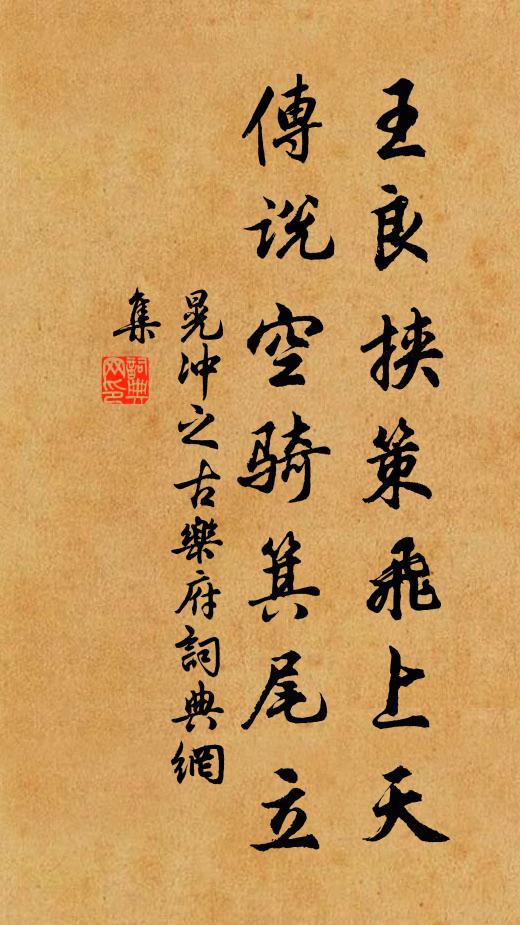 王良挾策飛上天
傅說空騎箕尾立
晁沖之古樂府詞典網
集
詞典
网印